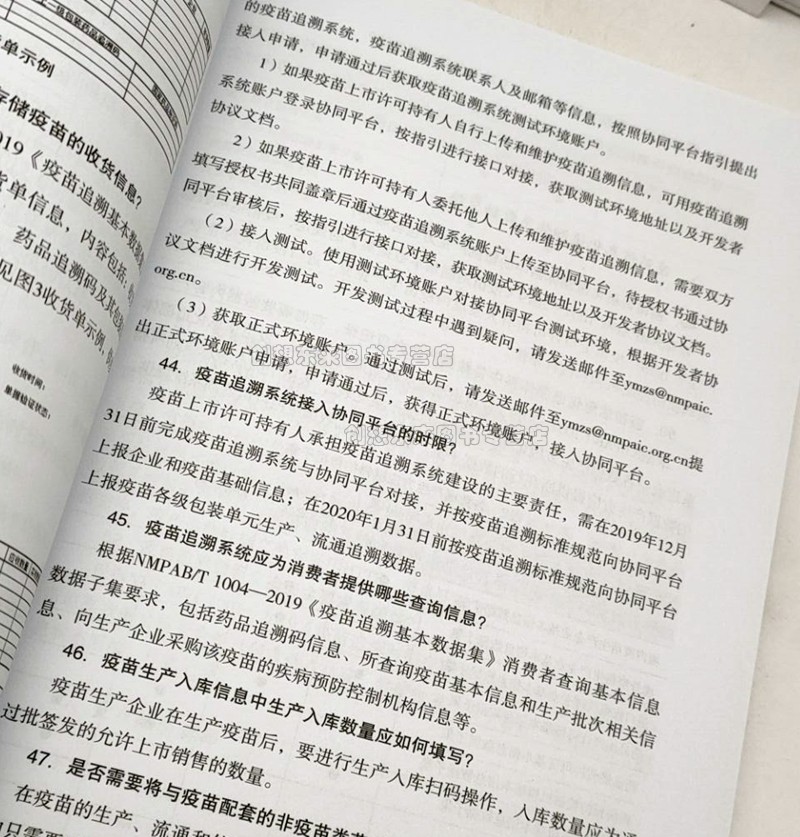 二级包装药品追溯码
单示例
存储疫苗的收货信息?
019《疫苗追溯基本数据
货单信息，内容包括：
药品追溯码及其他
见图3收货单示例，
收货时间：
单据验证状态：
的疫苗追溯系统，疫苗追溯系统联系人及邮箱等信息，按照协同平台指引提出
接入申请，申请通过后获取疫苗追溯系统测试环境账户。
1）如果疫苗上市许可持有人自行上传和维护疫苗追溯信息，可用疫苗追溯
系统账户登录协同平台，按指引进行接口对接，获取测试环境地址以及开发者
协议文档。
2）如果疫苗上市许可持有人委托他人上传和维护疫苗追溯信息，需要双方
填写授权书共同盖章后通过疫苗追溯系统账户上传至协同平台，待授权书通过协
同平台审核后，按指引进行接口对接，获取测试环境地址以及开发者协议文档。
（2）接入测试。使用测试环境账户对接协同平台测试环境，根据开发者协
议文档进行开发测试。开发测试过程中遇到疑问，请发送邮件至ymzs@nmpaic.
org.cn。
（3）获取正式环境账户。通过测试后，请发送邮件至ymzs@nmpaic.org.cn提
出正式环境账户申请，申请通过后，获得正式环境账户，接入协同平台。
44. 疫苗追溯系统接入协同平台的时限?
疫苗上市许可持有人承担疫苗追溯系统建设的主要责任，需在2019年12月
31日前完成疫苗追溯系统与协同平台对接，并按疫苗追溯标准规范向协同平台
上报企业和疫苗基础信息；在2020年1月31日前按疫苗追溯标准规范向协同平台
上报疫苗各级包装单元生产、流通追溯数据。
45. 疫苗追溯系统应为消费者提供哪些查询信息?
根据NMPAB/T 1004—2019《疫苗追溯基本数据集》消费者查询基本信息
数据子集要求，包括药品追溯码信息、所查询疫苗基本信息和生产批次相关信
息、向生产企业采购该疫苗的疾病预防控制机构信息等。
46. 疫苗生产入库信息中生产入库数量应如何填写?
疫苗生产企业在生产疫苗后，要进行生产入库扫码操作，入库数量应为通
过批签发的允许上市销售的数量。
47. 是否需要将与疫苗配套的非疫苗类
在疫苗的生产、流通和
只需要
创想未来图书专营店
创想未来图书专营店